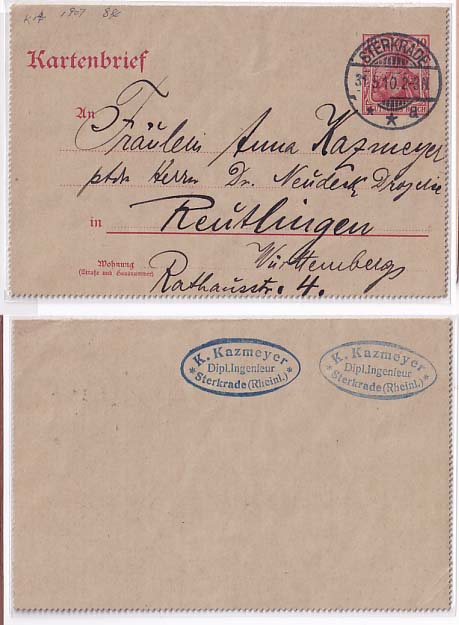 1907
Kartenbrief
STERKRADE
31.5.10.2-3N
* * a
An
Fräulein Anna Kazmeyer
Herrn Dr. Neudeck
in Reutlingen
Wohnung
(Straße und Hausnummer)
Württemberg
Rathausstr. 4.
K. Kazmeyer
Dipl.Ingenieur
* Sterkrade (Rheinl.) *
K. Kazmeyer
Dipl.Ingenieur
* Sterkrade (Rheinl.) *